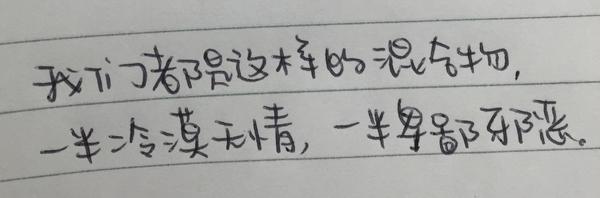 我们都是这样的混合物，
一半冷漠无情，一半卑鄙邪恶。